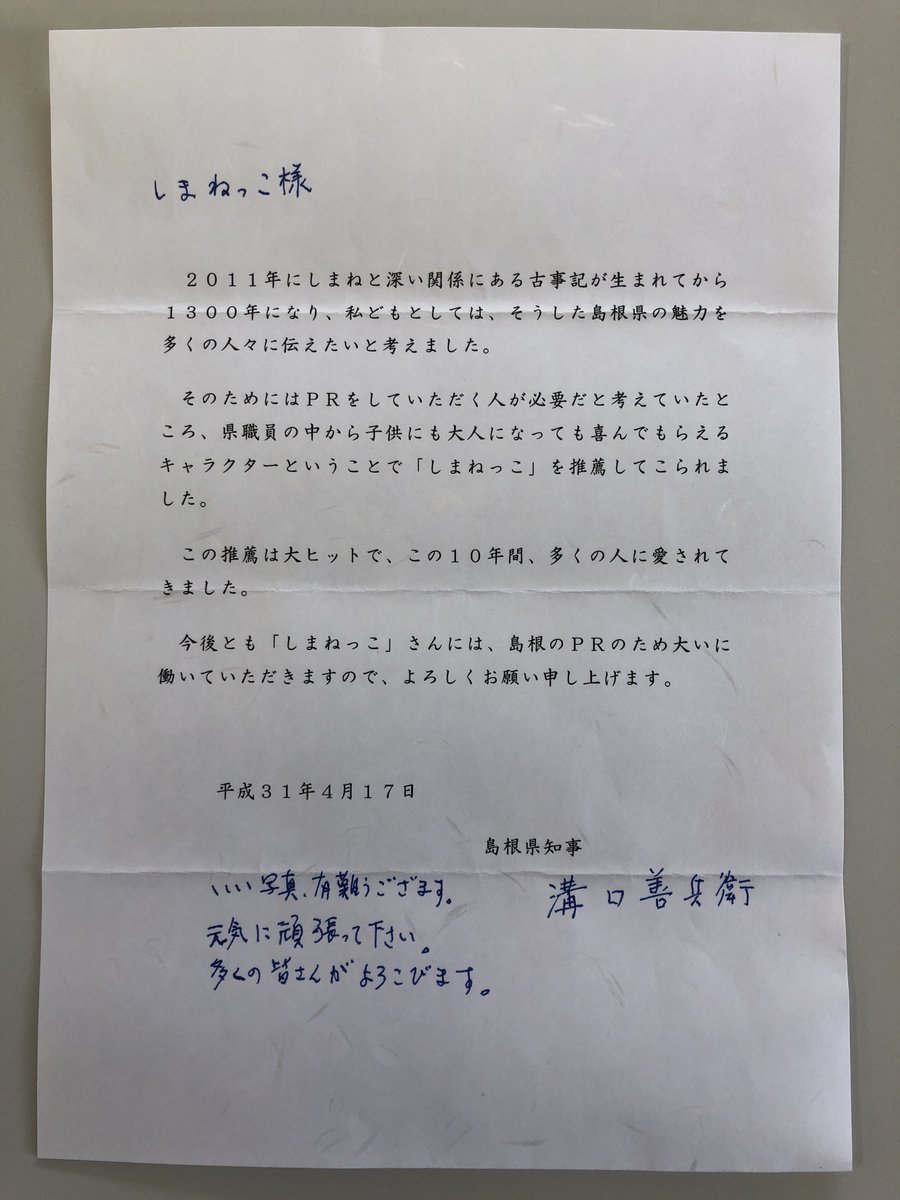 しまねっこ様
２０１１年にしまねと深い関係にある古事記が生まれてから
１３００年になり、私どもとしては、そうした島根県の魅力を
多くの人々に伝えたいと考えました。
そのためにはＰＲをしていただく人が必要だと考えていたと
ころ、県職員の中から子供にも大人になっても喜んでもらえる
キャラクターということで「しまねっこ」を推薦してこられま
した。
この推薦は大ヒットで、この１０年間、多くの人に愛されて
きました。
今後とも「しまねっこ」さんには、島根のＰＲのため大いに
働いていただきますので、よろしくお願い申し上げます。
平成３１年４月１７日
島根県知事
溝口善兵衛
いい写真、有難うござます。
元気に頑張って下さい。
多くの皆さんがよろこびます。